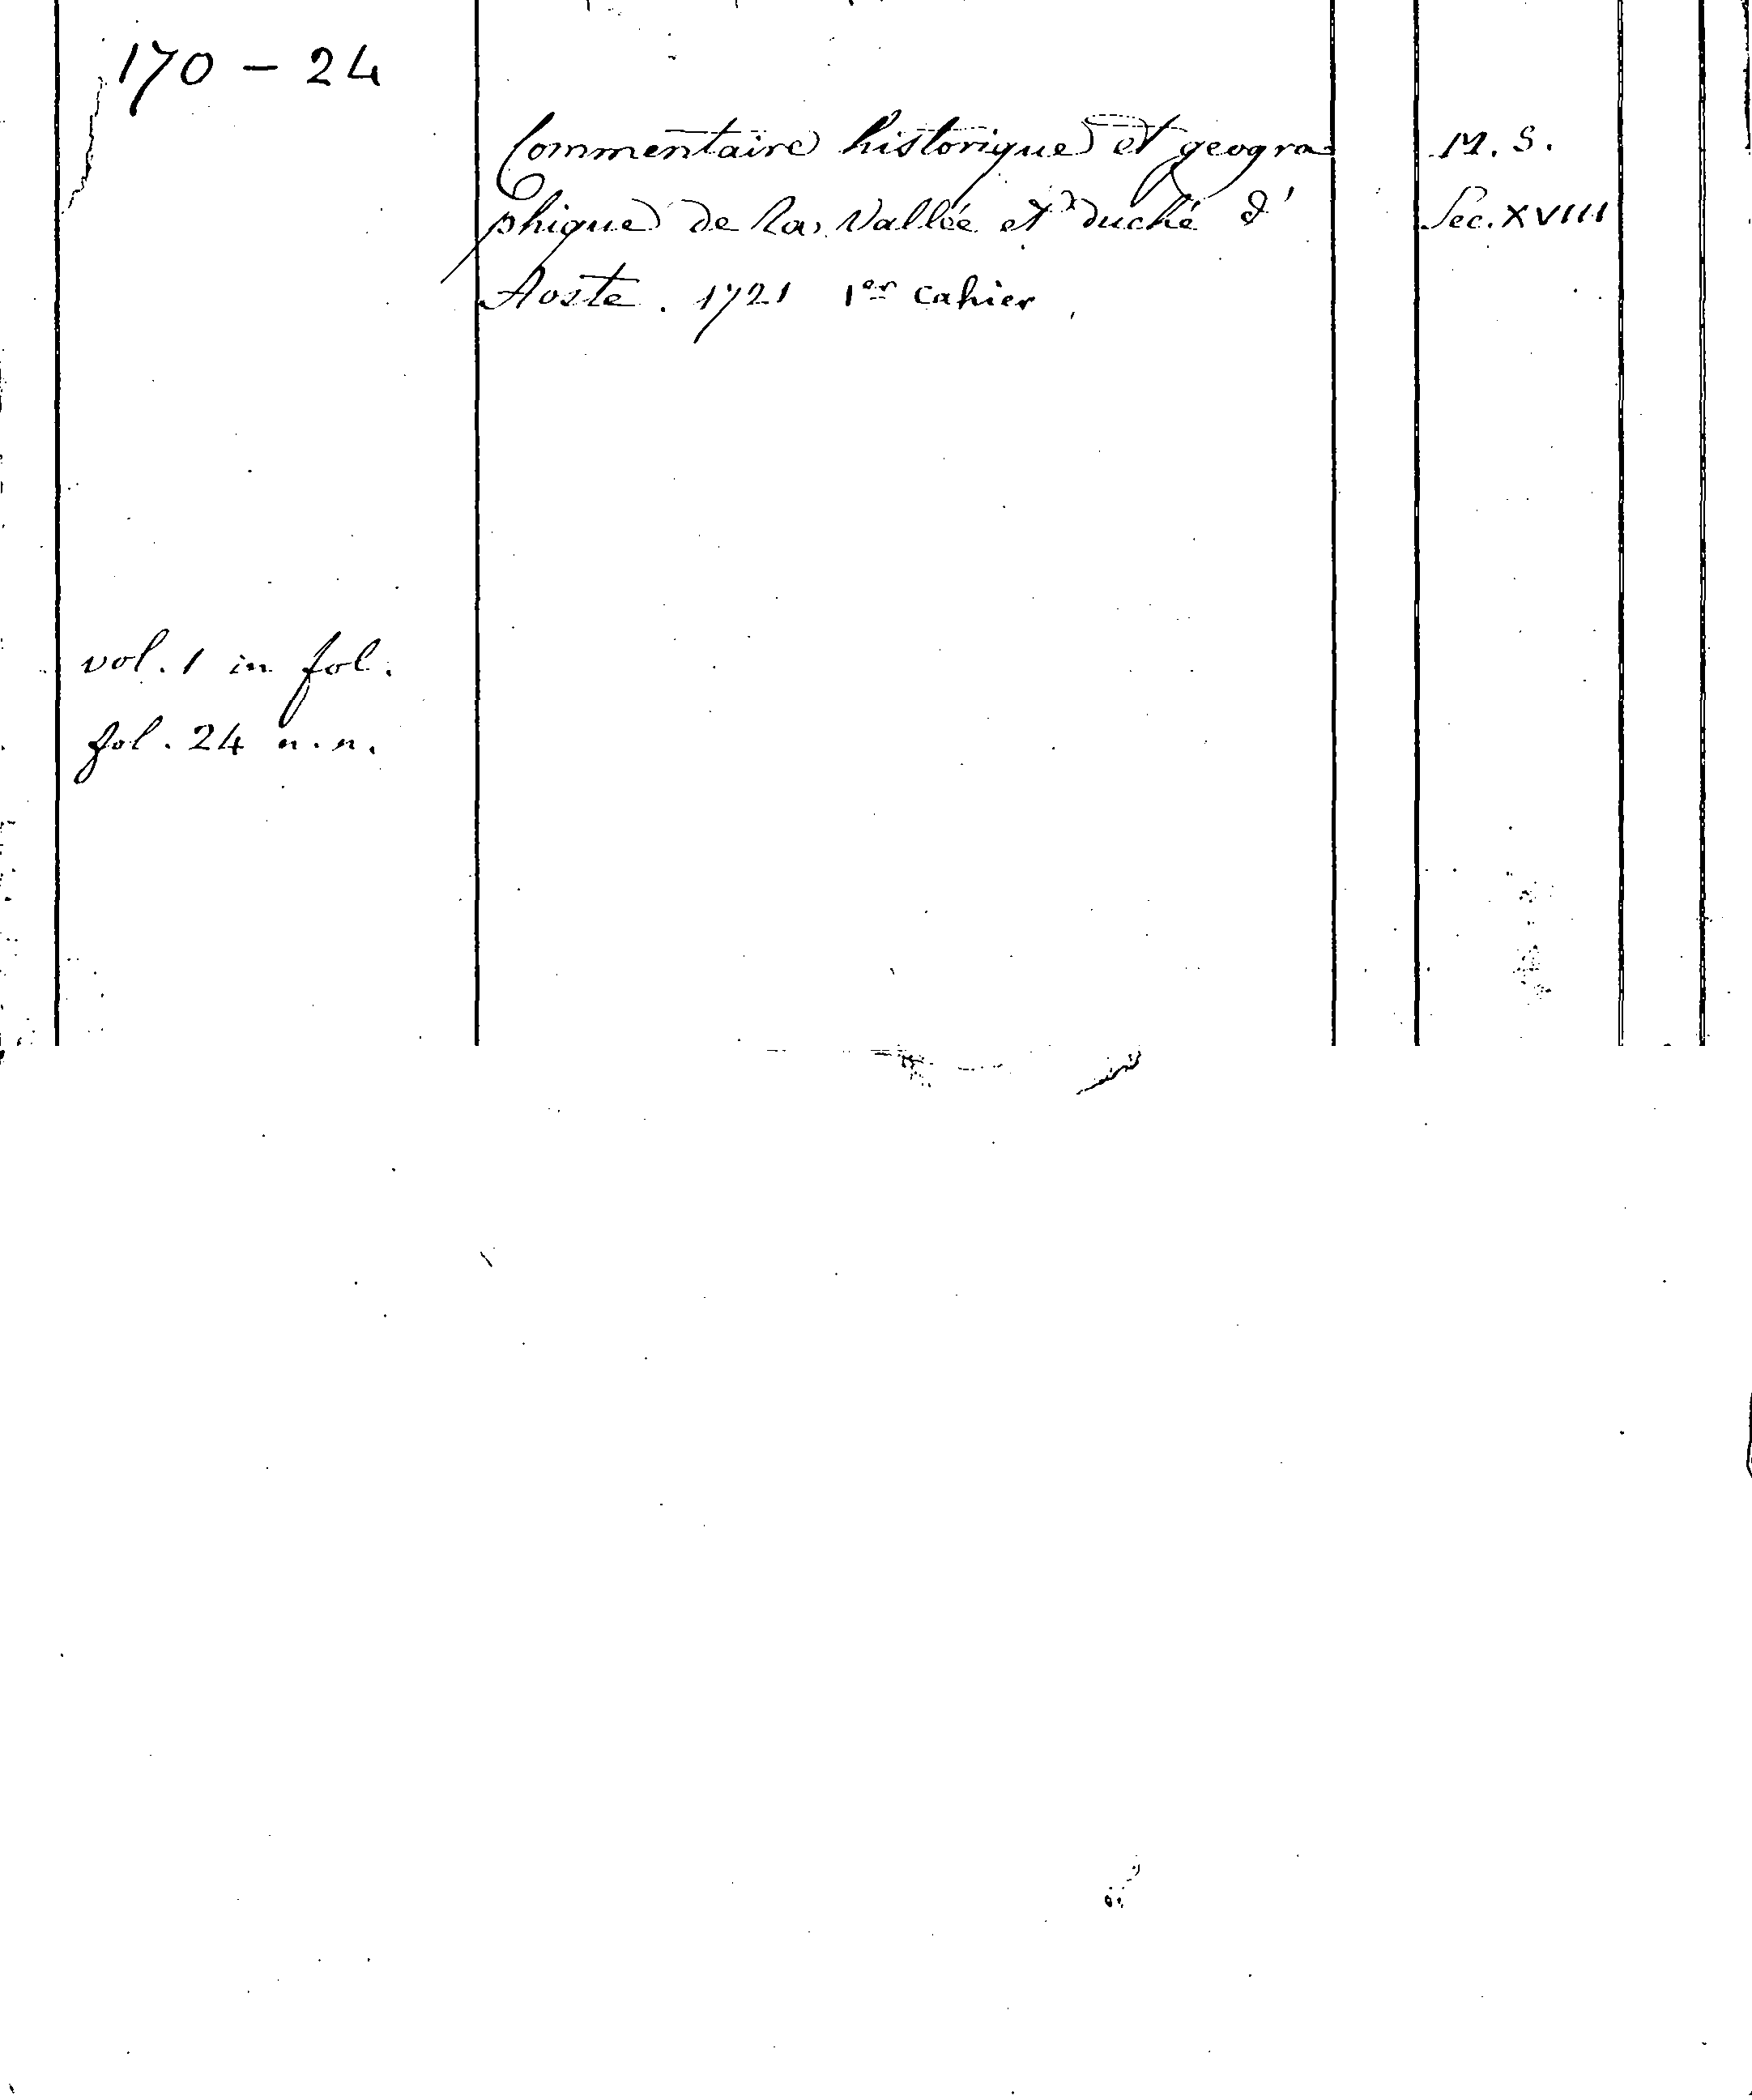 170 - 24
Commentaire historique et geogra
phique de la Vallée et duché d'
Aoste. 1721 1er cahier
M. S.
Sec. XVIII
vol. 1 in fol.
fol. 24 n.n.